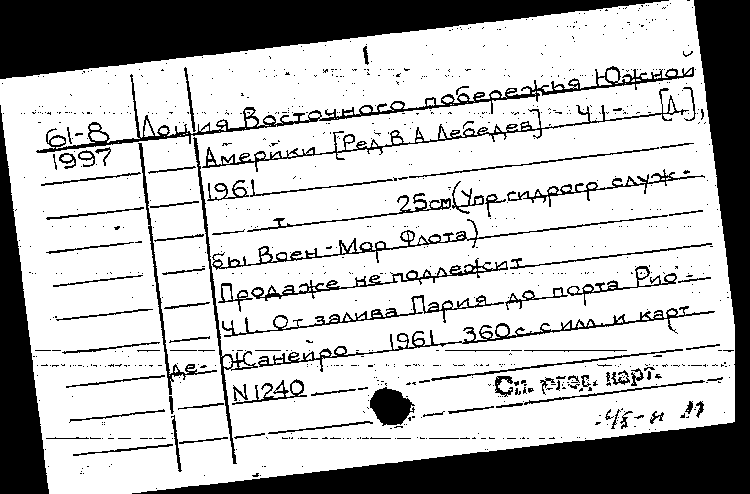 1
61-8 Лоция Восточного побережья Южной
1997 Америки [Ред В А Лебедев] Ч.1- [Л.],
1961
т. 25см (Упр гидрогр служ-
бы Воен-Мор Флота)
Продаже не подлежит
Ч.1. От залива Пария до порта Рио-
де- Жанейро. 1961. 360с. с илл. и карт
N1240
Сп. ред. карт.